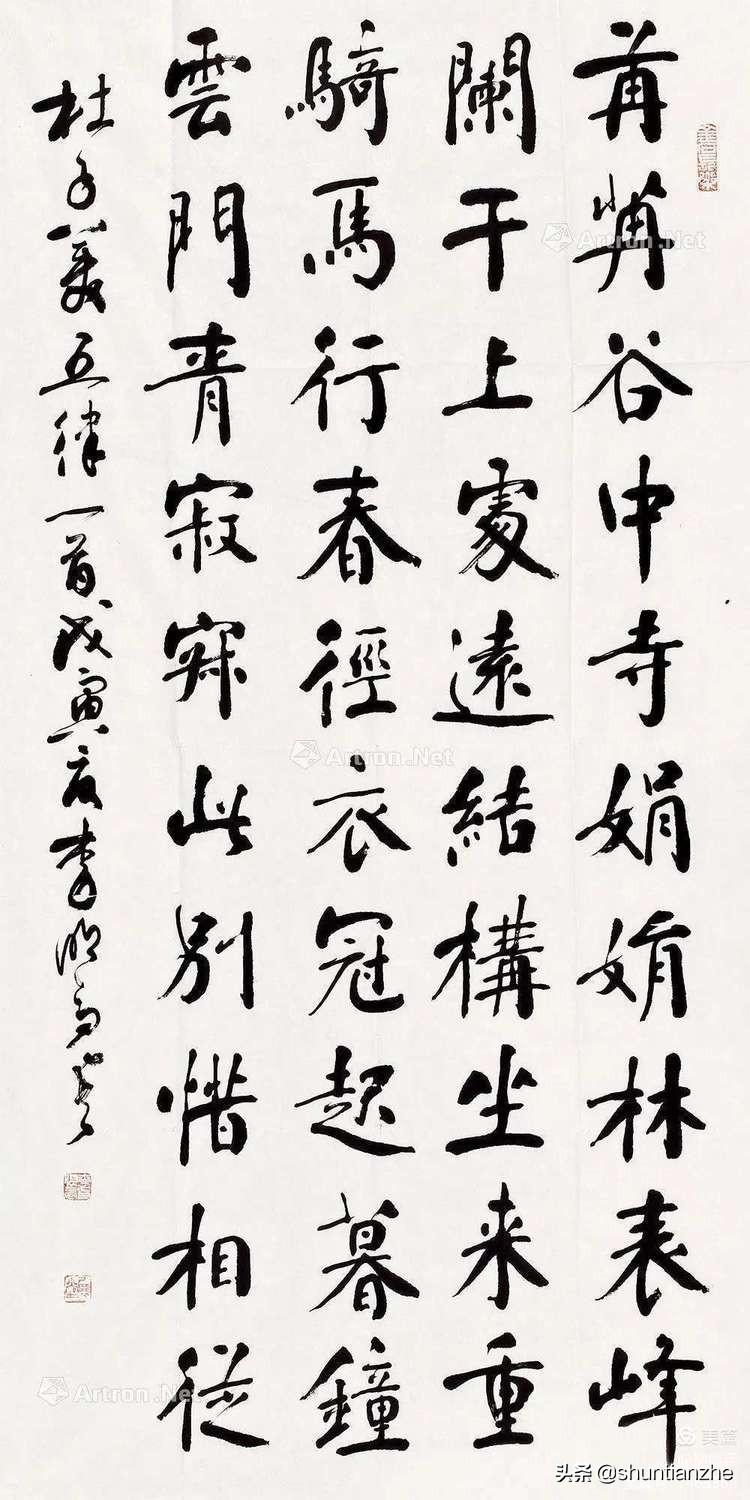 苒苒谷中寺娟娟林表峰
闌干上處遠結構坐来重
騎馬行春徑衣冠起暮鐘
雲門青寂寞此別惜相從
杜子美五律一首戊寅夏李
Artron.Net
Artron.Net
Artron.Net
美篇
头条 @shuntianzhe